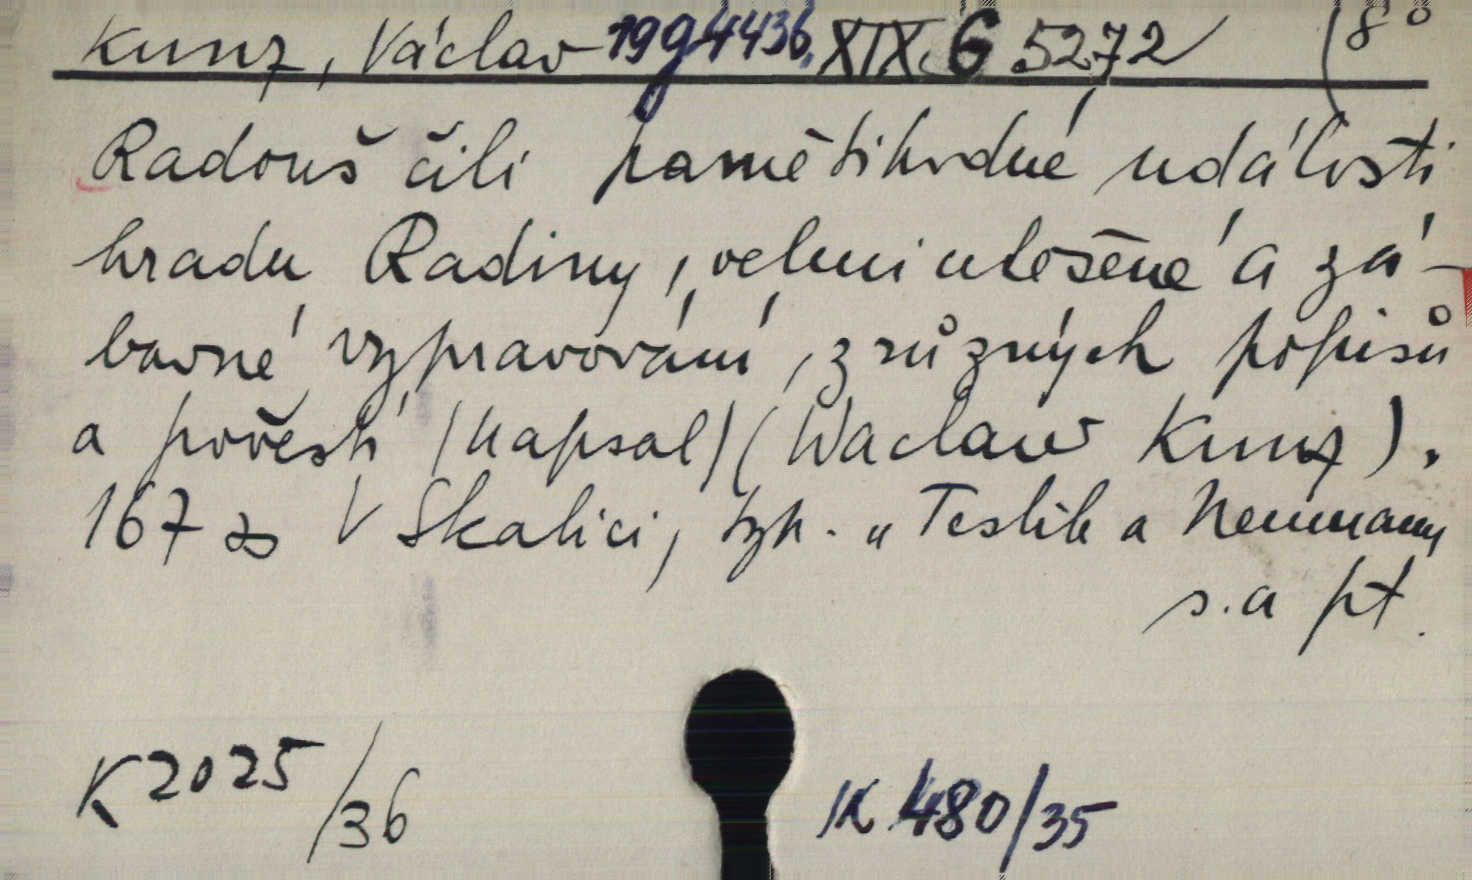 Kunz, Václav 19g4436. XIX G 5272 (8°
Radouš čili pamětihodné události
hradu Radiny, velmi utešené a zá-
bavné vypravování, z různých popisů
a pověstí /napsal/ (Waclaw Kunz).
167 s V Skalici, typ. "Teslik a Neumann
s.a pt.
K 2025/36
K 480/35